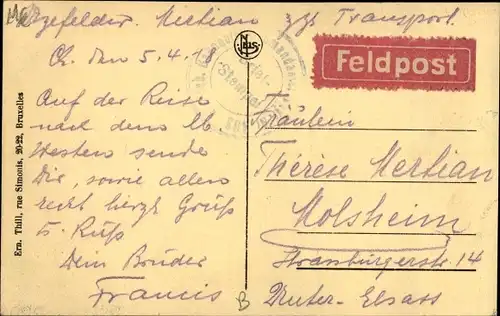 Vizefeldw. Mertian zzt Transport.
Ch. den 5.4.18
Auf der Reise
nach dem
Westen sende
Dir, sowie allen
recht herzl. Grüß
u. Kuß
Dein Bruder
Francis
Ern. Thill, rue Simonis, 20-22, Bruxelles
NELS
Stempel
Feldpost
Fräulein
Thérèse Mertian
Molsheim
Strassburgerstr. 14
Unter-Elsass
B